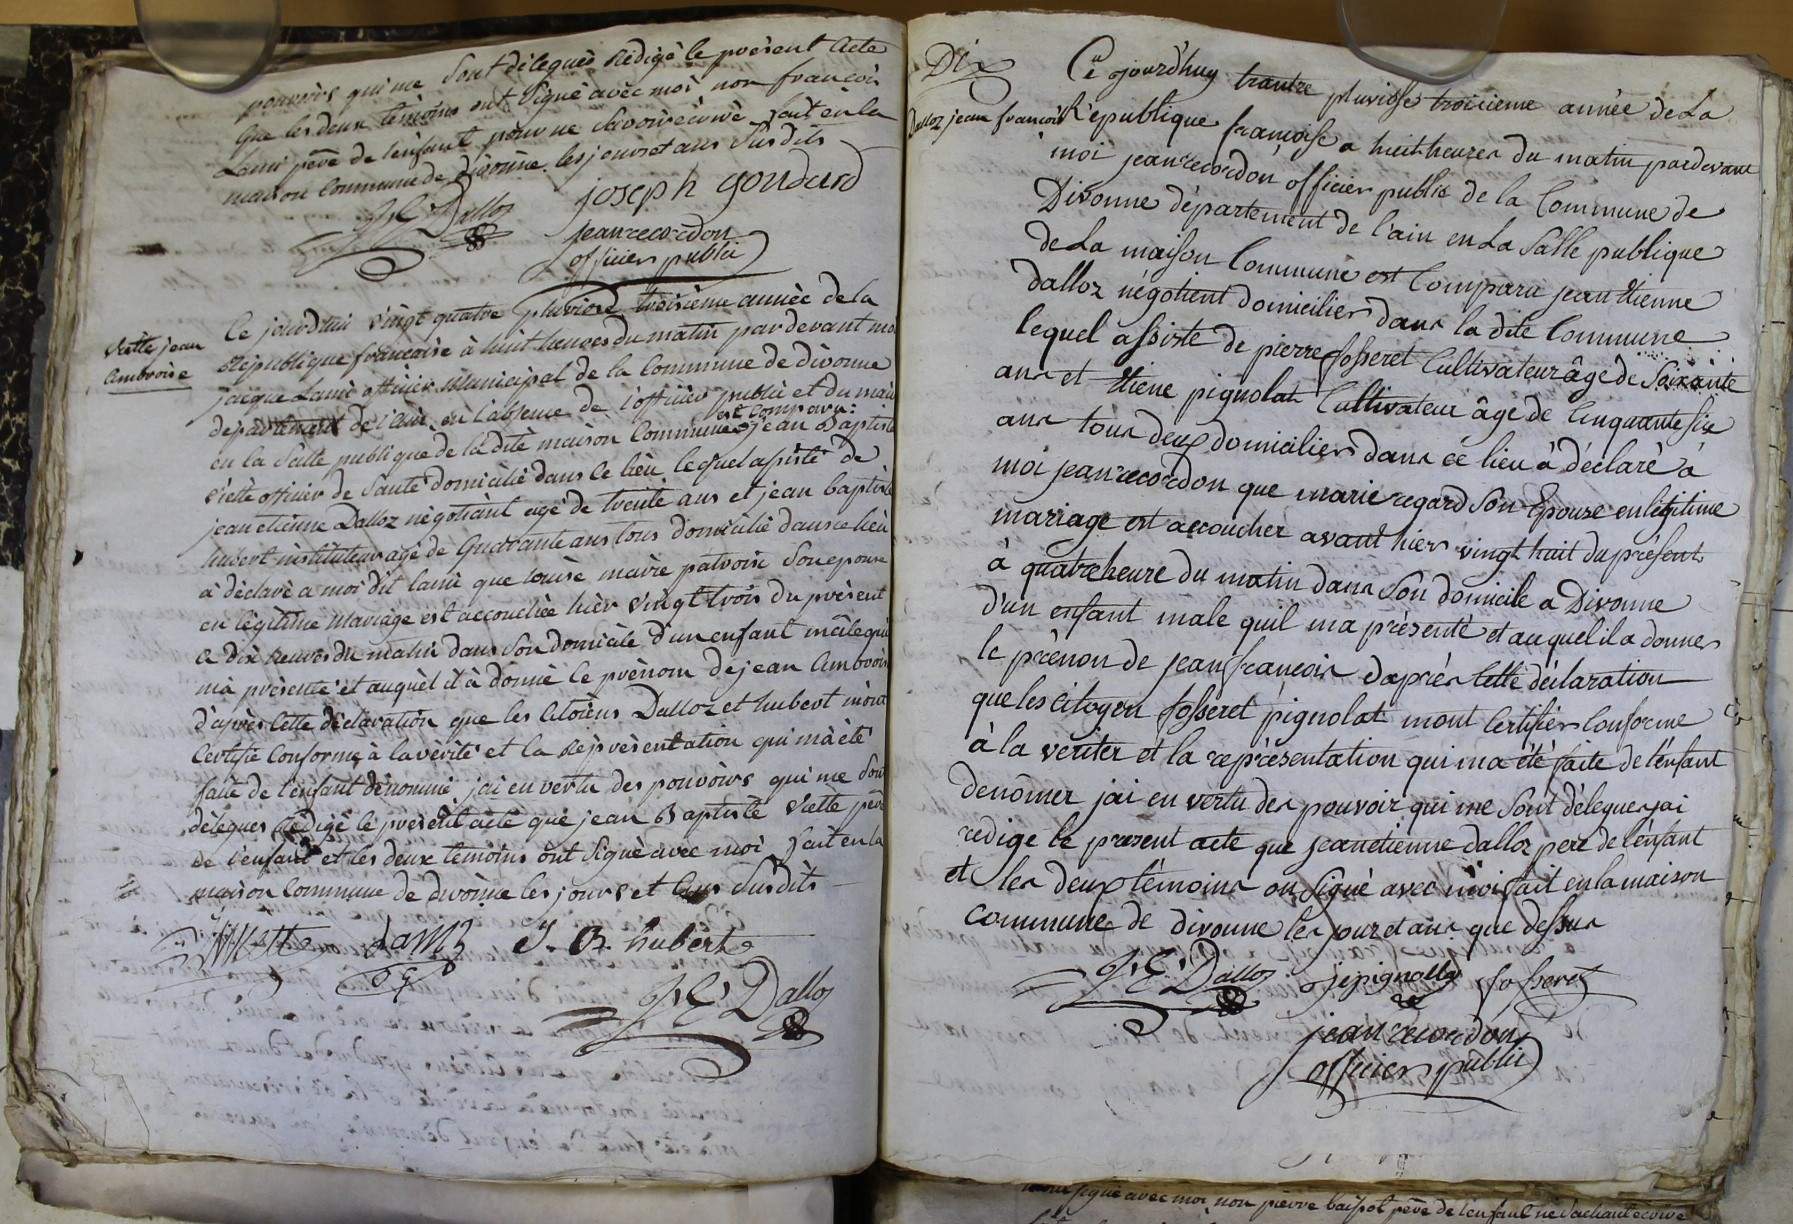 pouvoirs qui me sont délégués Rédigé le présent acte
que les deux témoins ont signé avec moi non françois
Lami père de l'enfant pour ne savoir écrire fait en la
maison Commune de divonne les jours et ans susdits
J. E. Dalloz joseph goudard
jean recordon
officier public
viette jean
Ambroise
Ce jourdhui vingt quatre pluviose troisième année de la
République françoise à huit heures du matin par devant moi
jacque Lami officier municipal de la Commune de divonne
département de l'ain en l'absence de l'officier public et du maire
en la salle publique de la dite maison Commune est comparu: jean Baptiste
viette officier de santé domicilié dans ce lieu lequel assisté de
jean etienne Dalloz négotiant agé de trente ans et jean baptiste
hubert instituteur agé de quarante ans tous domicilié dans ce lieu
à déclaré a moi dit lami que louise marie patroix son epouse
en légitime mariage est accouchée hièr vingt trois du présent
a dix heures du matin dans son domicile d'un enfant mâle qu'il
m'à présenté et auquel il à donné le prénom de jean Ambroise
d'après cette déclaration que les citoiens Dalloz et hubert m'ont
certifié conforme à la vérité et la représentation qui m'à été
faite de l'enfant dénommé j'ai en vertu des pouvoirs qui me sont
délegues Rédigé le présent acte que jean Baptiste viette père
de l'enfant et les deux témoins ont signé avec moi fait en la
maison Commune de divonne les jours et ans susdits
Viette Lami J. B. hubert
J. E. Dalloz
Dix
Dalloz jean francois
Ce ojourd'huy trantre pluviose troisieme année de La
République françoise a huit heures du matin pardevant
moi jean recordon officier public de la Commune de
Divonne département de l'ain en La salle publique
de La maison Commune est Comparu jean etienne
dalloz négotient domicilier dans la dite Commune
lequel assiste de pierre fosseret Cultivateur âge de soixante
ans et etiene pignolat Cultivateur âge de Cinquante six
ans tous deux domicilier dans ce lieu à déclaré à
moi jean recordon que marie regard son Epouse en légitime
mariage est accoucher avant hier vingt huit du présent
à quatre heure du matin dans son domicile a Divonne
d'un enfant male quil ma présenté et auquel il a donner
le prénon de jean francois daprés Cette déclaration
que les citoyen fosseret pignolat mont Certifier Conforme
à la veriter et la représentation qui ma été faite de l'enfant
denómer jai en vertu des pouvoir qui me sont délegues jai
redige le present acte que jean etienne dalloz pere de lénfant
et les deux témoins on signé avec moi fait en la maison
commune de divonne les jour et ans que dessus
J. E. Dalloz jepignolly fosseret
jean recordon
officier public
mont signé avec moi non pierre baissot père de l'enfant ne sachant ecrire